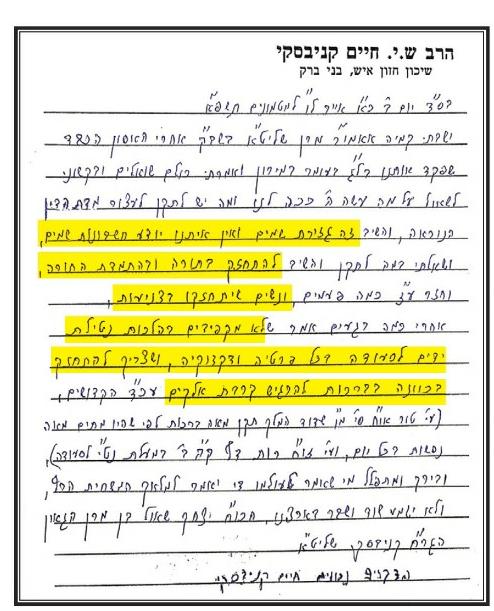 הרב ש.י. חיים קניבסקי
שיכון חזון איש, בני ברק
בס"ד יום ב' כ"א אייר ל"ו למטמונים תשפ"א
ישבתי קמיה אאמו"ר מרן שליט"א בשב"ק אחרי האסון הכבד
שפקד אותנו בל"ג בעומר במירון ואמרתי כולם שואלים ובקשוני
לשאול על מה עשה ה' ככה לנו ומה יש לתקן לעצור מדת הדין
הנוראה, והשיב זה גזירת שמים ואין איתנו יודע חשבונות שמים,
ושאלתי במה לתקן והשיב להתחזק בתורה ובהתמדת התורה,
וחזר ע"ז כמה פעמים, ונשים שיתחזקו בצניעות,
אחרי כמה רגעים אמר שלא מקפידים בהלכות נטילת
ידים לסעודה בכל פרטיה ודקדוקיה, ושצריך להתחזק
בכוונה בברכות להרגיש קרבת אלקים עכ"ד הקדושים,
(עי' טור או"ח סי' מ"ו שדוד המלך תקן מאה ברכות לפי שהיו מתים מאה
נפשות בכל יום, ועי' זוה"ח רות דף ק"ק ב' במעלת נט"י לסעודה),
ובירך ומתפלל מי שאמר לעולמו די יאמר למלאך המשחית הרף,
ולא ישמע שוד ושבר בארצנו, הכו"ח יצחק שאול בן מרן הגאון
הגר"ח קניבסקי שליט"א
הדברים נכונים חיים קניבסקי